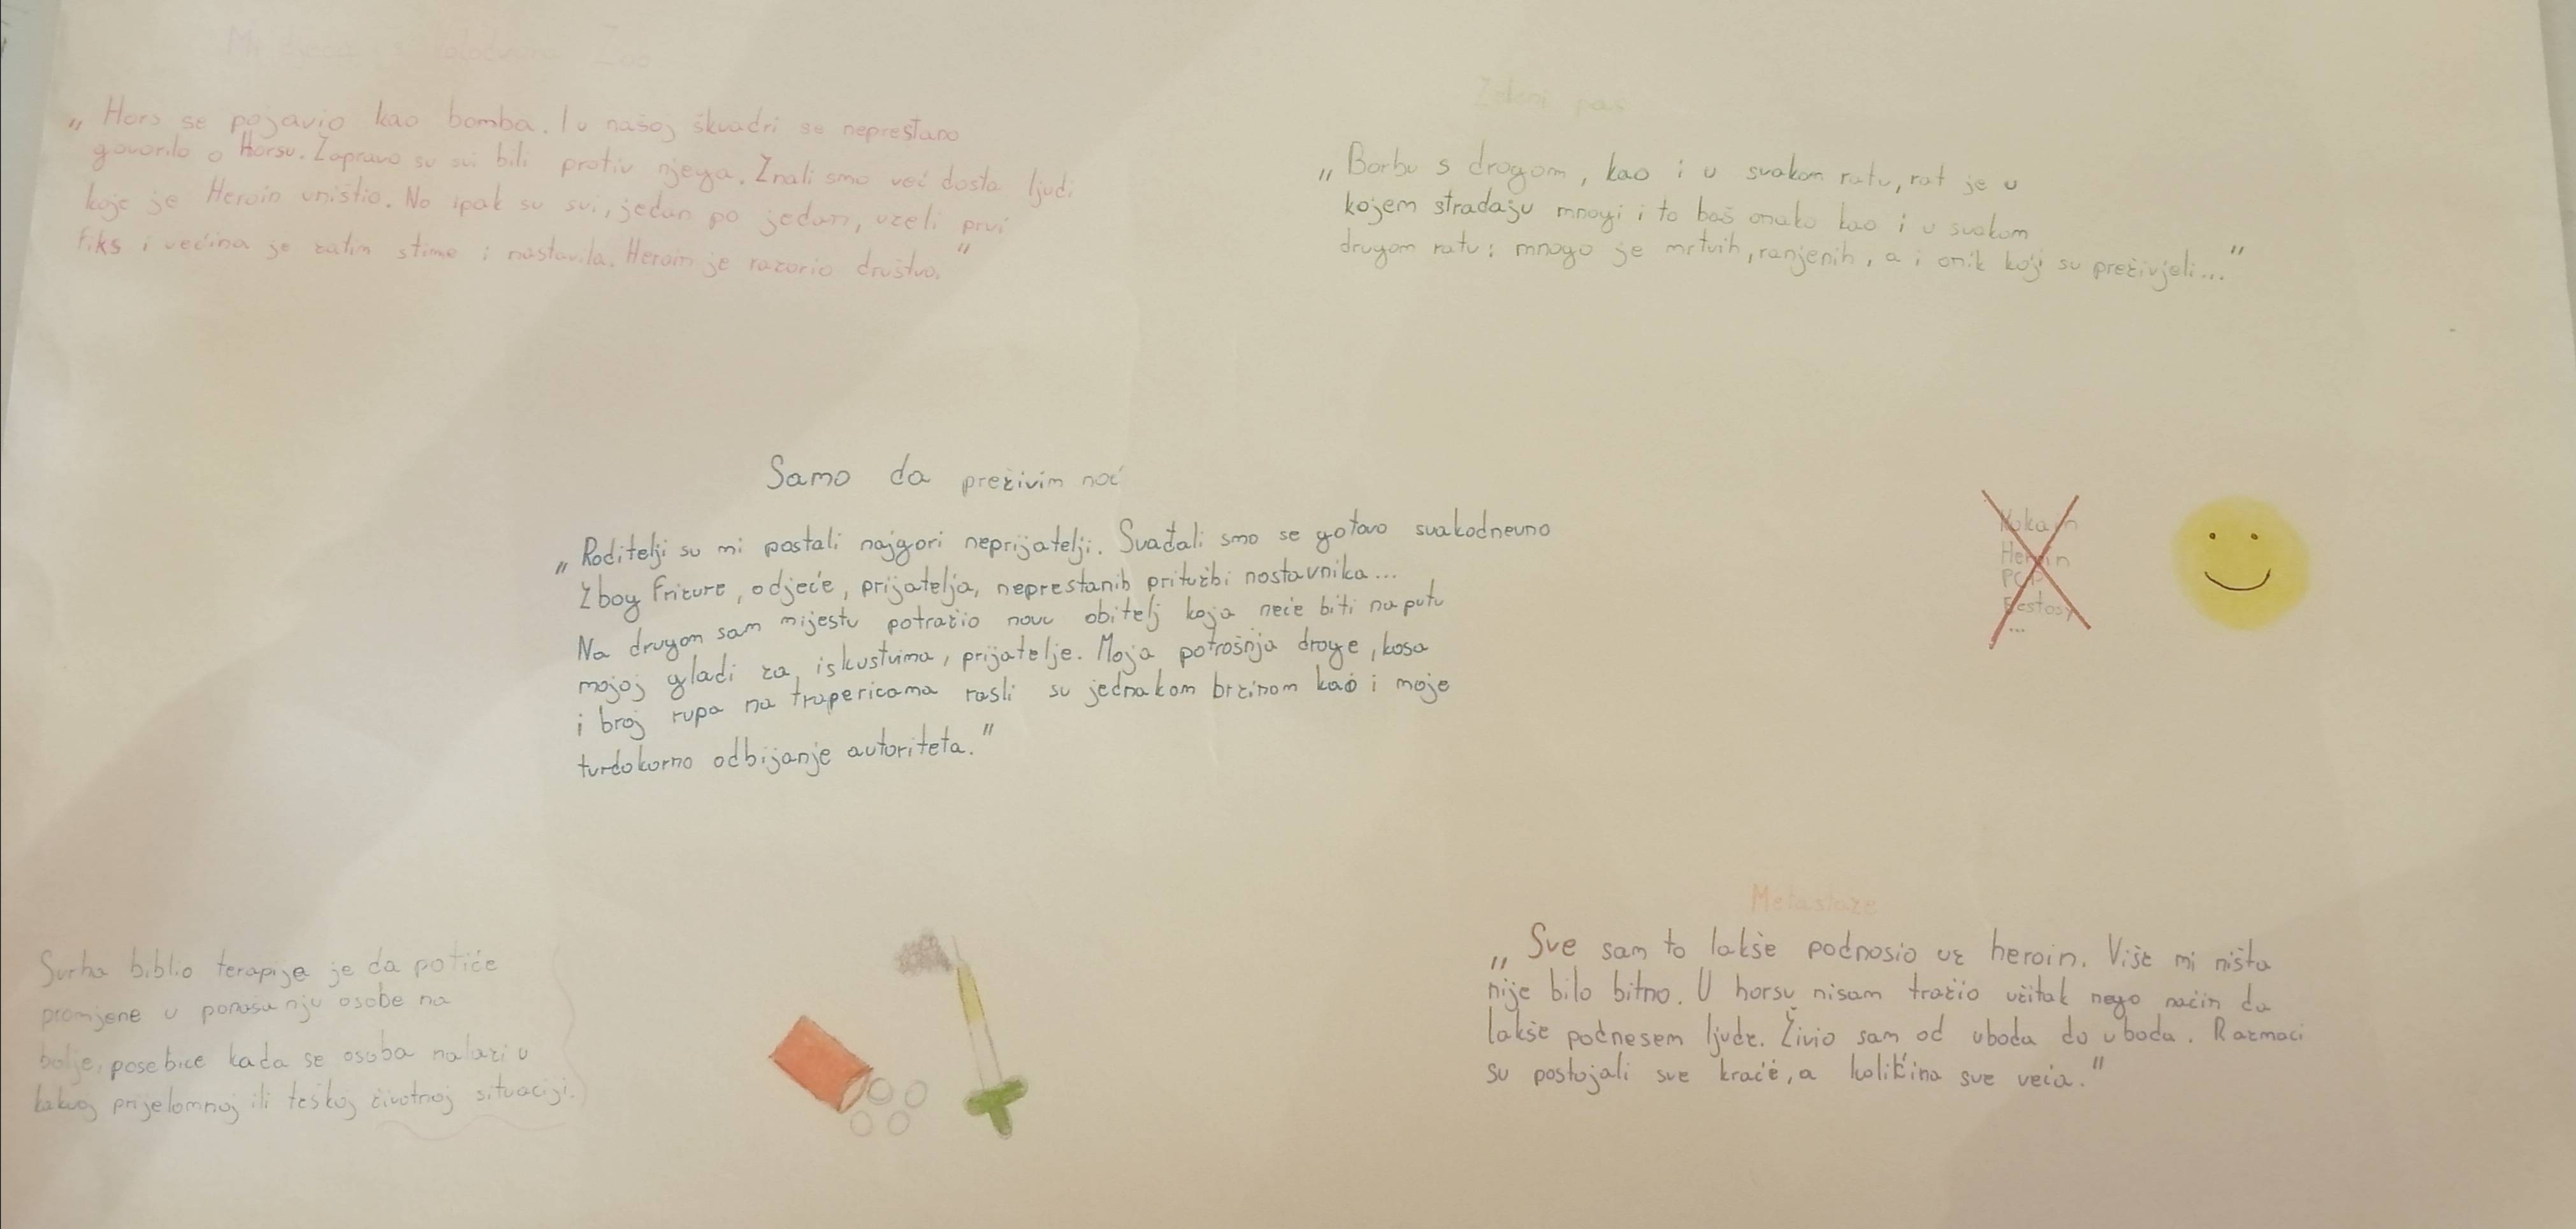 Mi djeca s kolodvora Zoo
„Hors se pojavio kao bomba. I u našoj škvadri se neprestano
govorilo o Horsu. Zapravo su svi bili protiv njega. Znali smo već dosta ljudi
koje je Heroin uništio. No ipak su svi, jedan po jedan, uzeli prvi
fiks i većina je zatim stime i nastavila. Heroin je razorio društvo."
Zeleni pas
„Borbu s drogom, kao i u svakom ratu, rat je u
kojem stradaju mnogi i to baš onako kao i u svakom
drugom ratu: mnogo je mrtvih, ranjenih, a i onih koji su preživjeli..."
Samo da preživim noć
„Roditelji su mi postali najgori neprijatelji. Svađali smo se gotovo svakodnevno
Zbog frizure, odjeće, prijatelja, neprestanih pritužbi nastavnika...
Na drugom sam mijestu potražio novu obitelj koja neće biti na putu
mojoj gladi za iskustvima, prijatelje. Moja potrošnja droge, kosa
i broj rupa na trapericama rasli su jednakom brzinom kao i moje
tvrdokorno odbijanje autoriteta."
Kokain
Heroin
PCP
Ecstasy
...
Metastaze
„Sve sam to lakše podnosio uz heroin. Više mi ništa
nije bilo bitno. U horsu nisam tražio užitak nego način da
lakše podnesem ljude. Živio sam od uboda do uboda. Razmaci
su postojali sve kraće, a količina sve veća."
Svrha biblio terapije je da potiče
promjene u ponašanju osobe na
bolje, posebice kada se osoba nalazi u
kakvoj prijelomnoj ili teškoj životnoj situaciji.